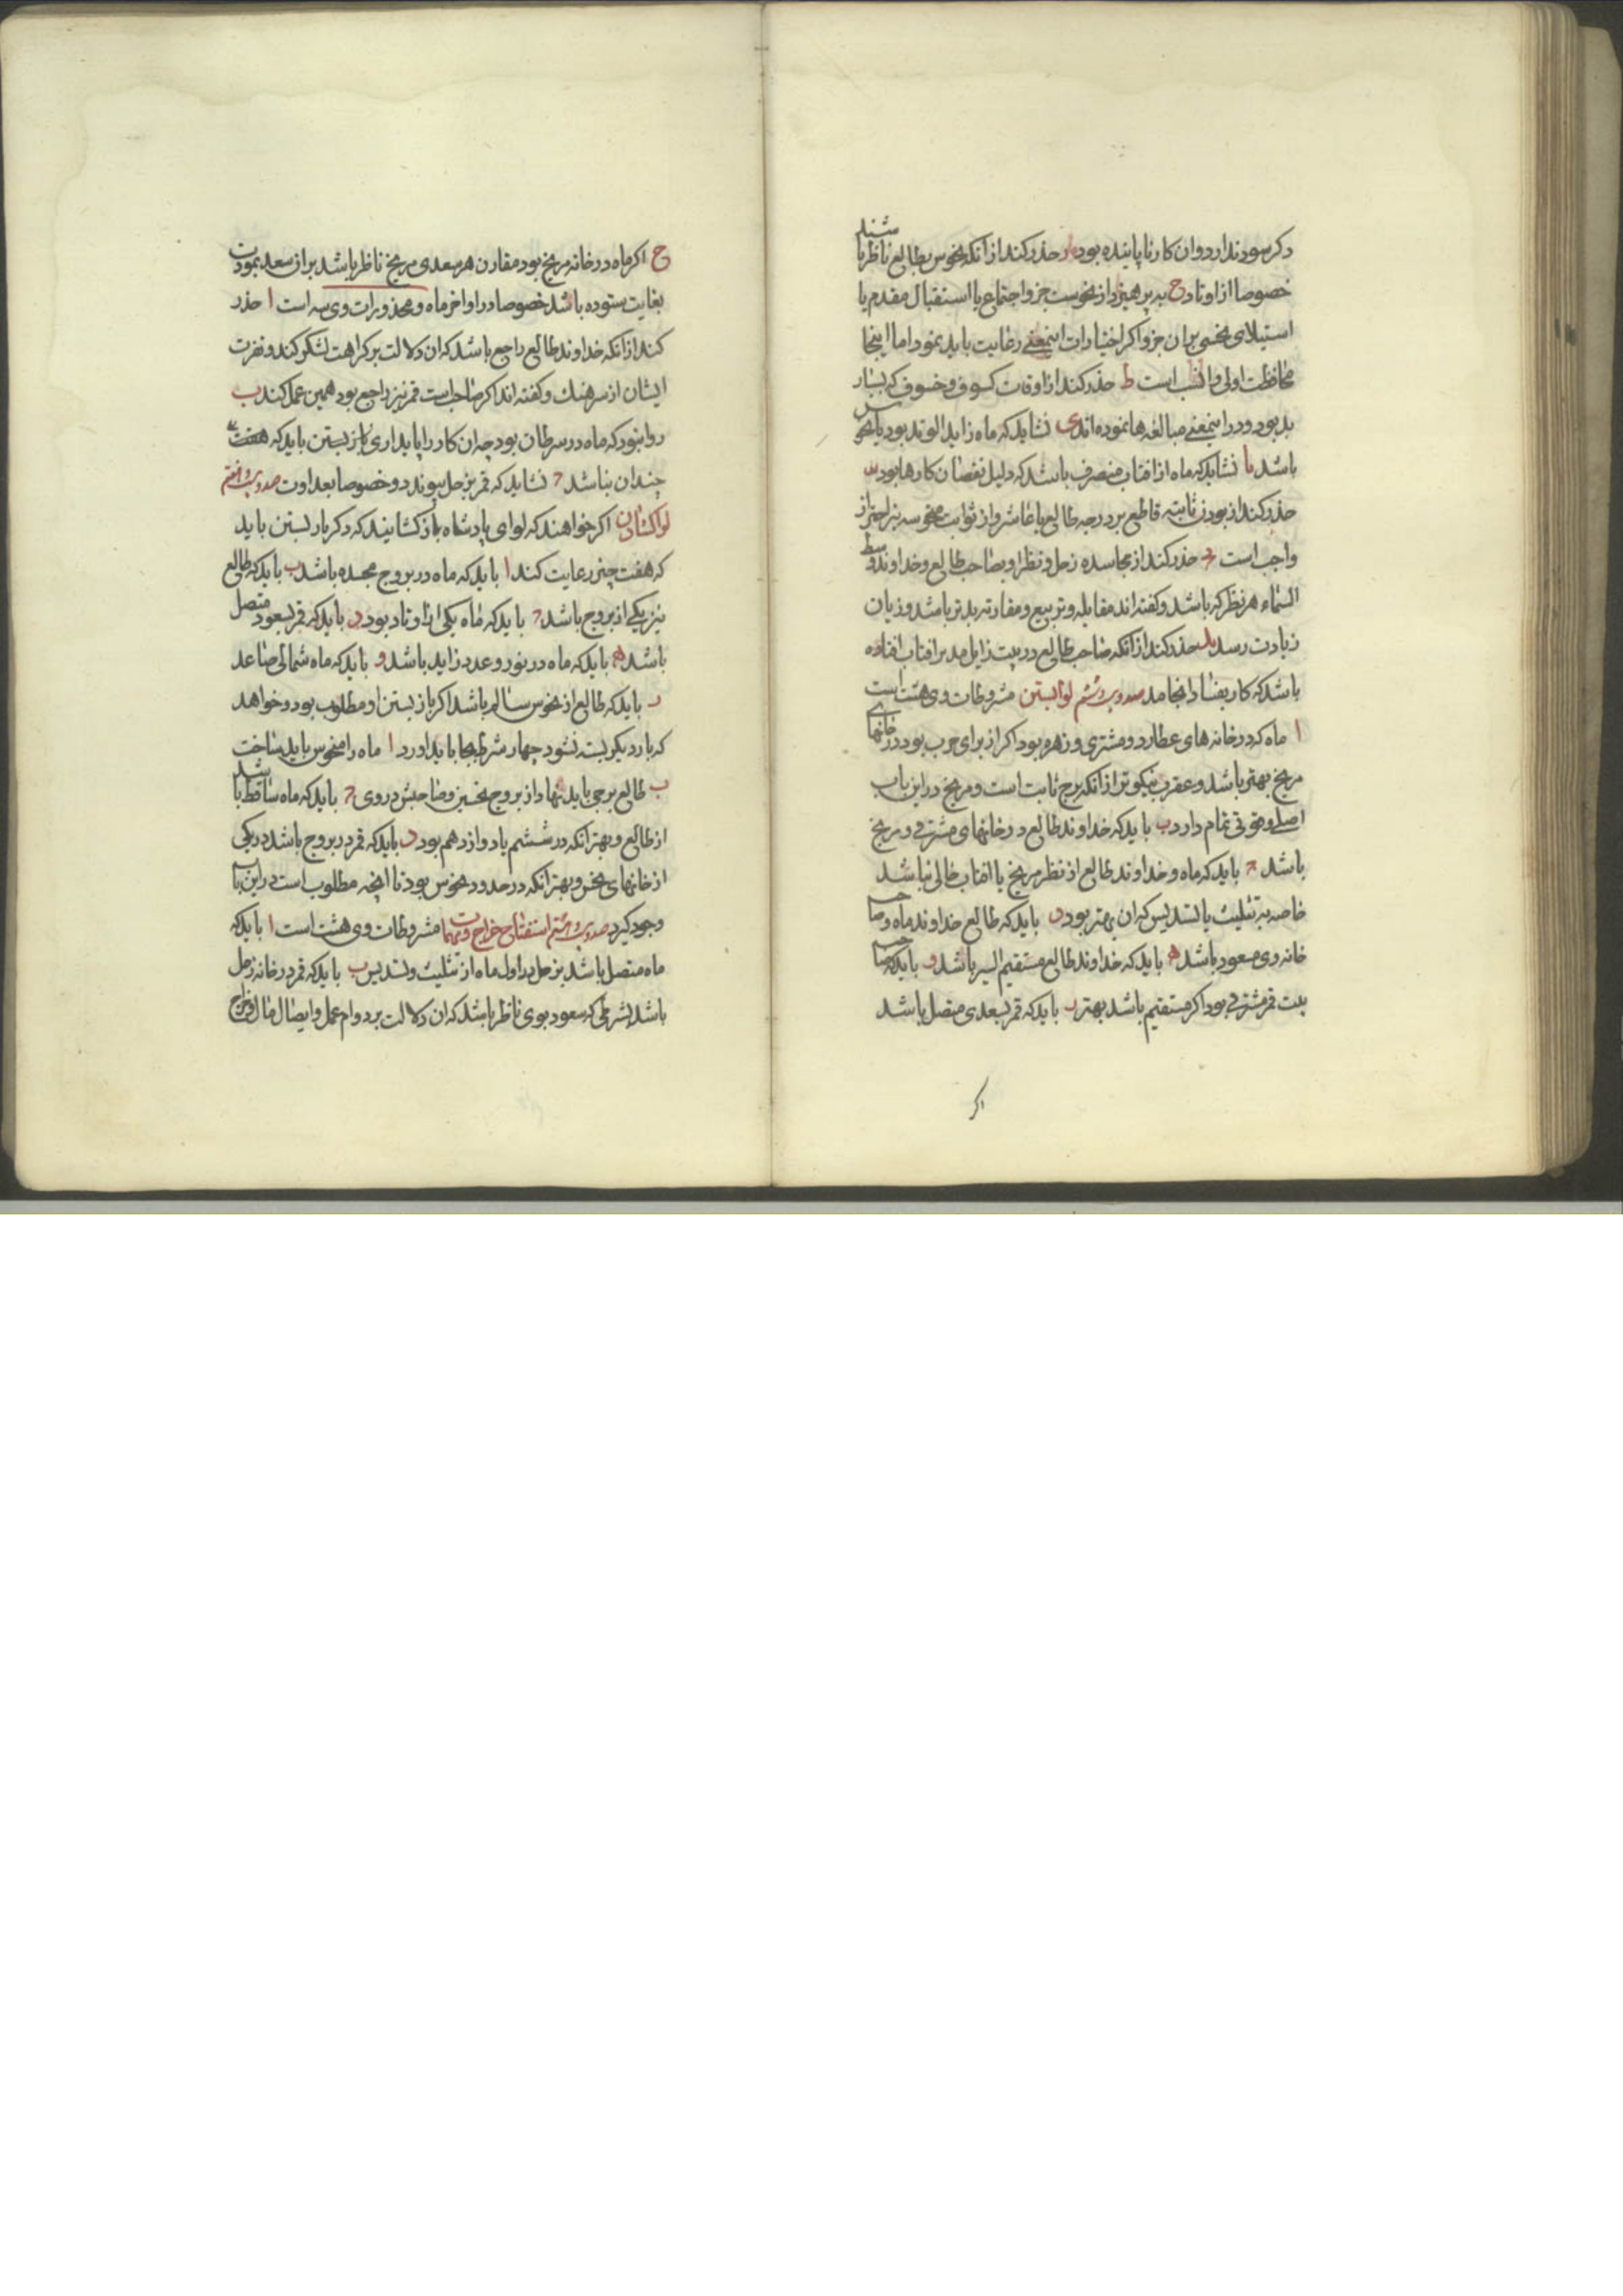 دکر سود ندارد و ان کار ناپاینده بود ر حذر کند از انکه نحوس بطالع ناظر باشند
خصوصا از اوتاد ح بپرهیزد از نحوست جزو اجتماع یا استقبال مقدم یا
استیلای نحسی بران جزو اکر اختیارات اینمعنی رعایت باید نمود اما اینجا
محافظت اولی و انسب است ط حذر کند از اوقات کسوف و خسوف که بسیار
بد بود و در اینمعنی مبالغه ها نموده اند ی نشاید که ماه زاید الوتد بود با نحوس
باشد یا نشاید که ماه از افتاب منصرف باشد که دلیل نقصان کارها بود یب
حذر کند از بودن ثابته قاطع بر درجه طالع یا عاشر و از ثوابت منحوسه نیز احتراز
واجب است یج حذر کند از مجاسده زحل و نظر او بصاحب طالع و خداوند وسط
السماء هر نظر که باشد و کفته اند مقابله و تربیع و مقارنه بدتر باشد و زیان
زیادت رسد ید حذر کند از انکه صاحب طالع در بیت زایل مدبر افتاب افتاده
باشد که کار بفساد انجامد لوا بستن مشروطات وی هشت است
ا ماه که در خانه های عطارد و مشتری و زهره بود اکر از برای حرب بود در خانهای
مریخ بهتر باشد و عقرب نیکوتر از انکه برج ثابت است و مریخ در این باب
اصلی و قوتی تمام دارد ب باید که خداوند طالع در خانهای مشتری و مریخ
باشد ج باید که ماه و خداوند طالع از نظر مریخ یا افتاب خالی نباشد
خاصه به تثلیث یا تسدیس که ان بهتر بود د باید که طالع خداوند ماه و صاحب
خانه وی مسعود باشد ه باید که خداوند طالع مستقیم السیر باشد و باید که صاحب
بیت قمر مشرقی بود اکر مستقیم باشد بهتر ز باید که قمر بسعدی متصل باشد
اکر
ح اکر ماه در خانه مریخ بود مقارن هر سعدی مریخ ناظر باشد بران سعد بمودت
بغایت ستوده باشد خصوصا در اواخر ماه و محذورات وی سه است ا حذر
کند از انکه خداوند طالع راجع باشد که ان دلالت بر کراهت لشکر کند و نفرت
ایشان از سرهنك و کفته اند اکر صاحب بیت قمر نیز راجع بود همین عمل کند ب
روا نبود که ماه در سرطان بود چه ان کار را پایداری باز بستن باید که
چندان نباشد ج نشاید که قمر بزحل پیوندد و خصوصا بعداوت
لوا کشادن اکر خواهند که لوای پادشاه باز کشایند که دکر بار بستن باید
که هفت چیز رعایت کند ا باید که ماه در بروج مجسده باشد ب باید که طالع
نیز یکی از بروج باشد ج باید که ماه یکی از اوتاد بود د باید که قمر بسعود متصل
باشد ه باید که ماه در نور و عدد زاید باشد و باید که ماه شمالی صاعد
ز باید که طالع از نحوس سالم باشد اکر باز بستن او مطلوب بود و خواهد
که بار دیکر بسته نشود چهار شرط بجا باید اورد ا ماه را منحوس باید ساخت
ب طالع برجی باید نهاد از بروج نحسین و صاحبش در وی ج باید که ماه ساقط باشد
از طالع و بهتر انکه در ششم یا دوازدهم بود د باید که قمر در بروج باشد در یکی
از خانهای نحس و بهتر انکه در حدود نحوس بود تا انچه مطلوب است در این باب
وجود کیرد استفتاح خراج و مهمات مشروطات وی هشت است ا باید که
ماه متصل باشد بزحل در اول ماه از تثلیث و تسدیس ب باید که قمر در خانه زحل
باشد بشرطی که سعود بوی ناظر باشد که ان دلالت بر دوام عمل و ایصال مال و خراج